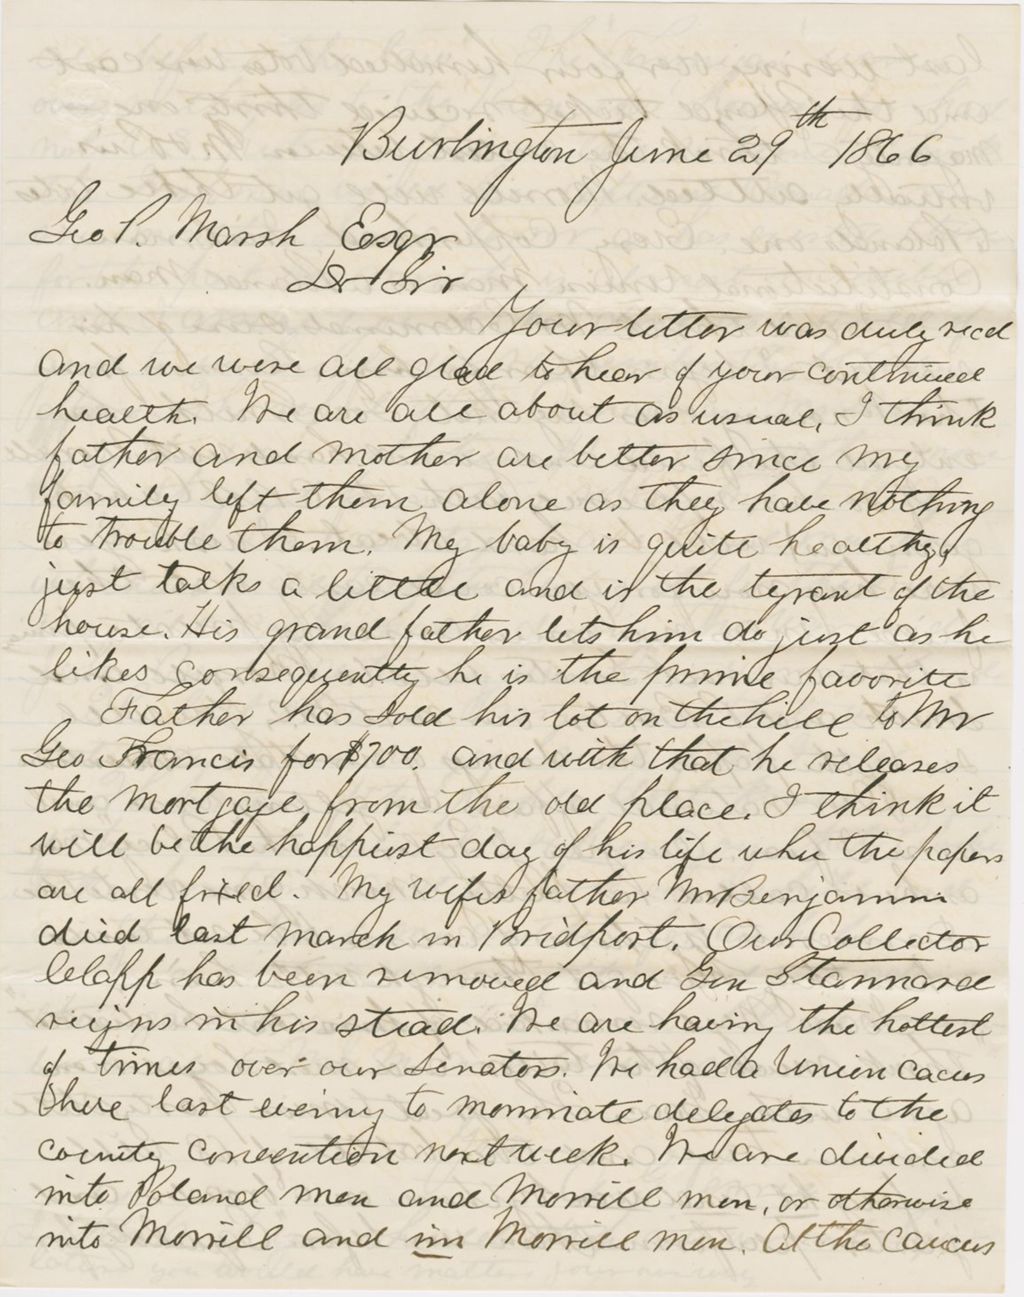 Burlington June 29th 1866
Geo P. Marsh Esqr
Dr Sir
Your letter was duly recd
and we were all glad to hear of your continued
health. We are all about as usual, I think
father and mother are better since my
family left them alone as they have nothing
to trouble them. My baby is quite healthy,
just talks a little and is the tyrant of the
house. His grand father lets him do just as he
likes consequently he is the prime favorite
Father has sold his lot on the hill to Mr
Geo Francis for $700. and with that he releases
the mortgage from the old place. I think it
will be the happiest day of his life when the papers
are all fixed. My wifes father Mr Benjamin
died last march in Bridport. Our Collector
Clapp has been removed and Gen Stannard
reigns in his stead. We are having the hottest
of times over our Senators. We had a Union cacus
here last evening to nominate delegates to the
county convention next week. We are divided
into Poland men and Morrill men, or otherwise
into Morrill and im Morrill men. At the caucus